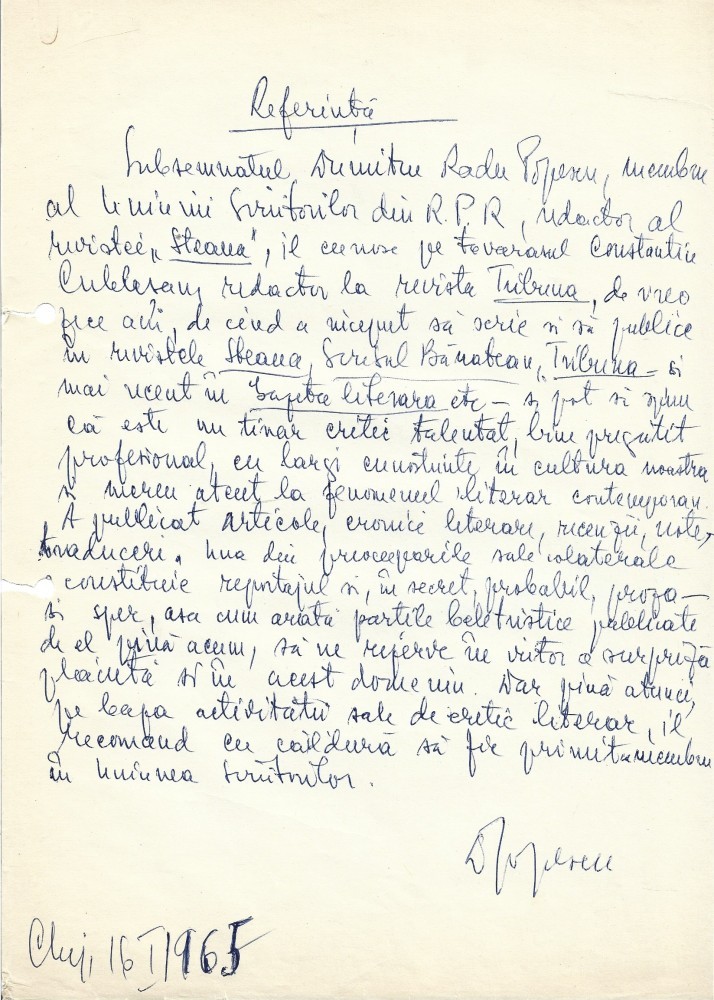 Referință
Subsemnatul, Dumitru Radu Popescu, membru
al Uniunii Scriitorilor din R.P.R, redactor al
revistei „Steaua", îl cunosc pe tovarasul Constantin
Cubleșan, redactor la revista Tribuna, de vreo
zece ani, de cînd a nceput să scrie si să publice
în revistele Steaua, Scrisul Bănatean, Tribuna – si
mai recent în Gazeta literara etc – si pot să spun
că este un tinar critic talentat, bine pregatit
profesional, cu largi cunostiinte în cultura noastra
si mereu atent la fenomenul literar contemporan.
A publicat articole, cronici literare, recenzii, note,
traduceri. Una din preocuparile sale colaterale
o constituie reportajul si, în secret, probabil, proza –
si sper, asa cum arată partile beletristice publicate
de el pînă acum, să ne rezerve în viitor o surpriză
plăcută si în acest domeniu. Dar pînă atunci,
pe baza activității sale de critic literar, îl
recomand cu căldură să fie primit ca membru
în Uniunea Scriitorilor.
DRPopescu
Cluj, 16 I 1965